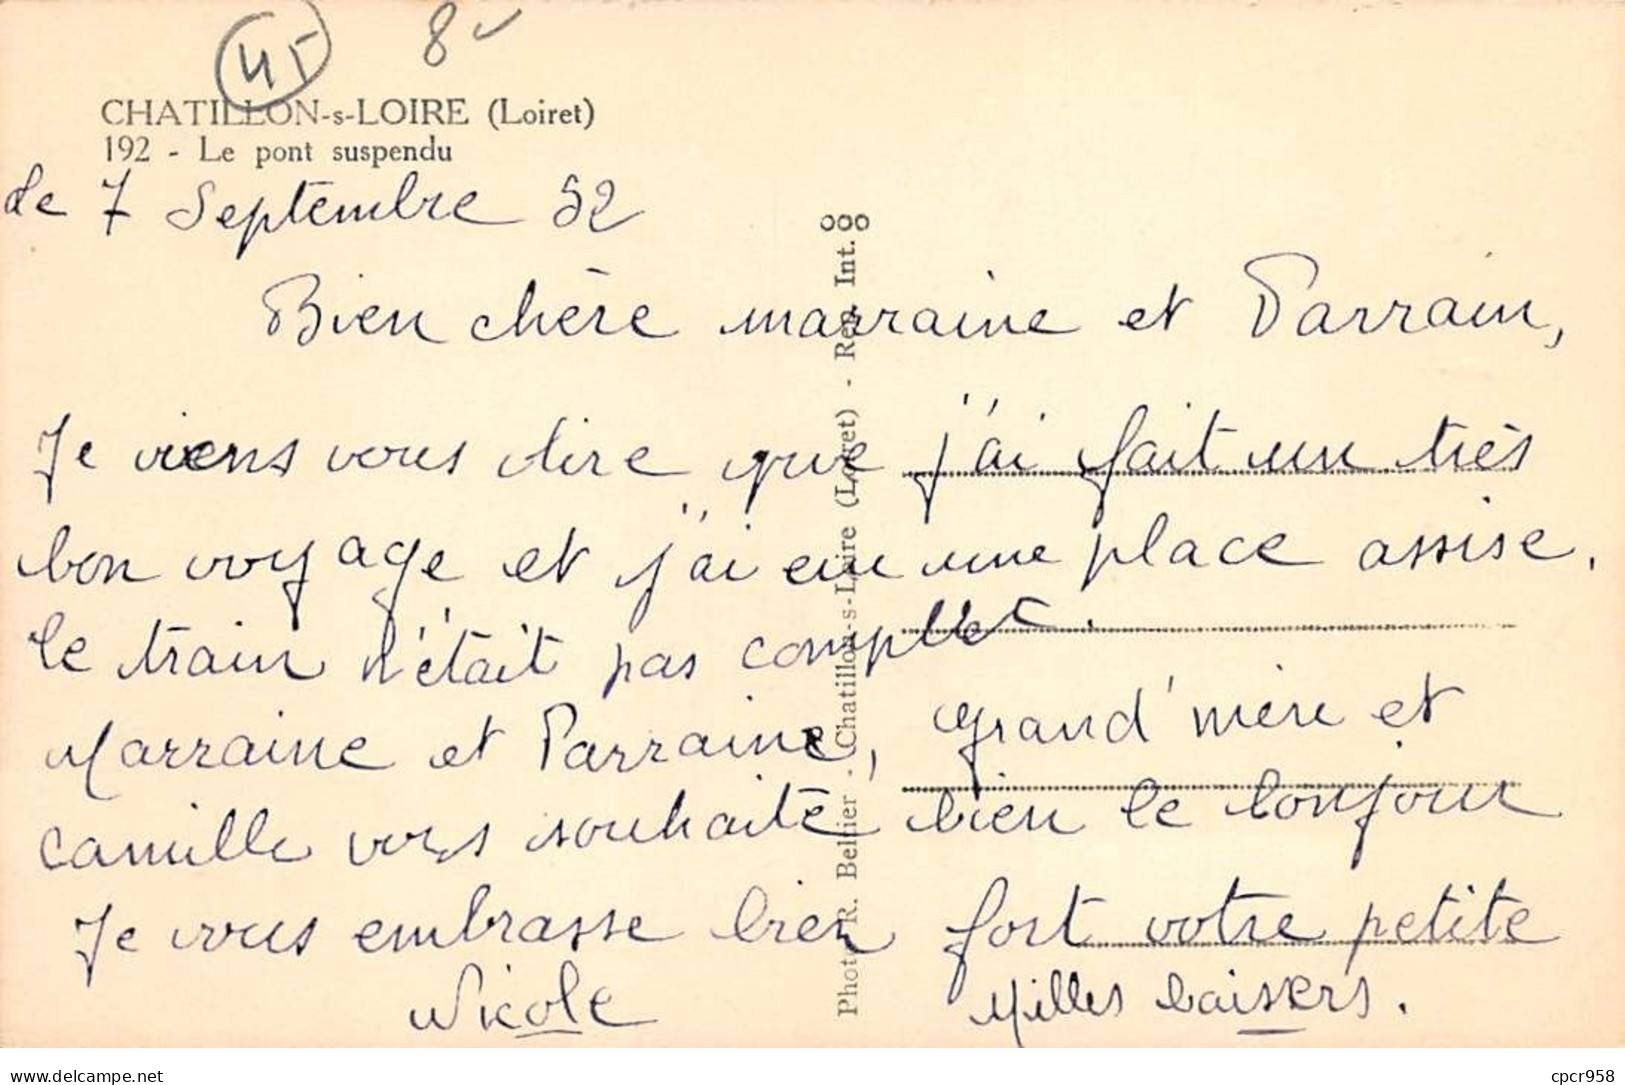 45 8
CHATILLON-s-LOIRE (Loiret)
192 - Le pont suspendu
Le 7 Septembre 52
Bien chère marraine et Parrain,
Je viens vous dire que j'ai fait un très
bon voyage et j'ai eu une place assise.
le train n'était pas complet.
Marraine et Parraine, grand'mère et
Camille vous souhaite bien le bonjour
Je vous embrasse bien fort votre petite
Nicole Milles baisers.
Photo R. Bellier - Chatillon-s-Loire (Loiret) - Rep. Int. ooo
www.delcampe.net
cpcr958